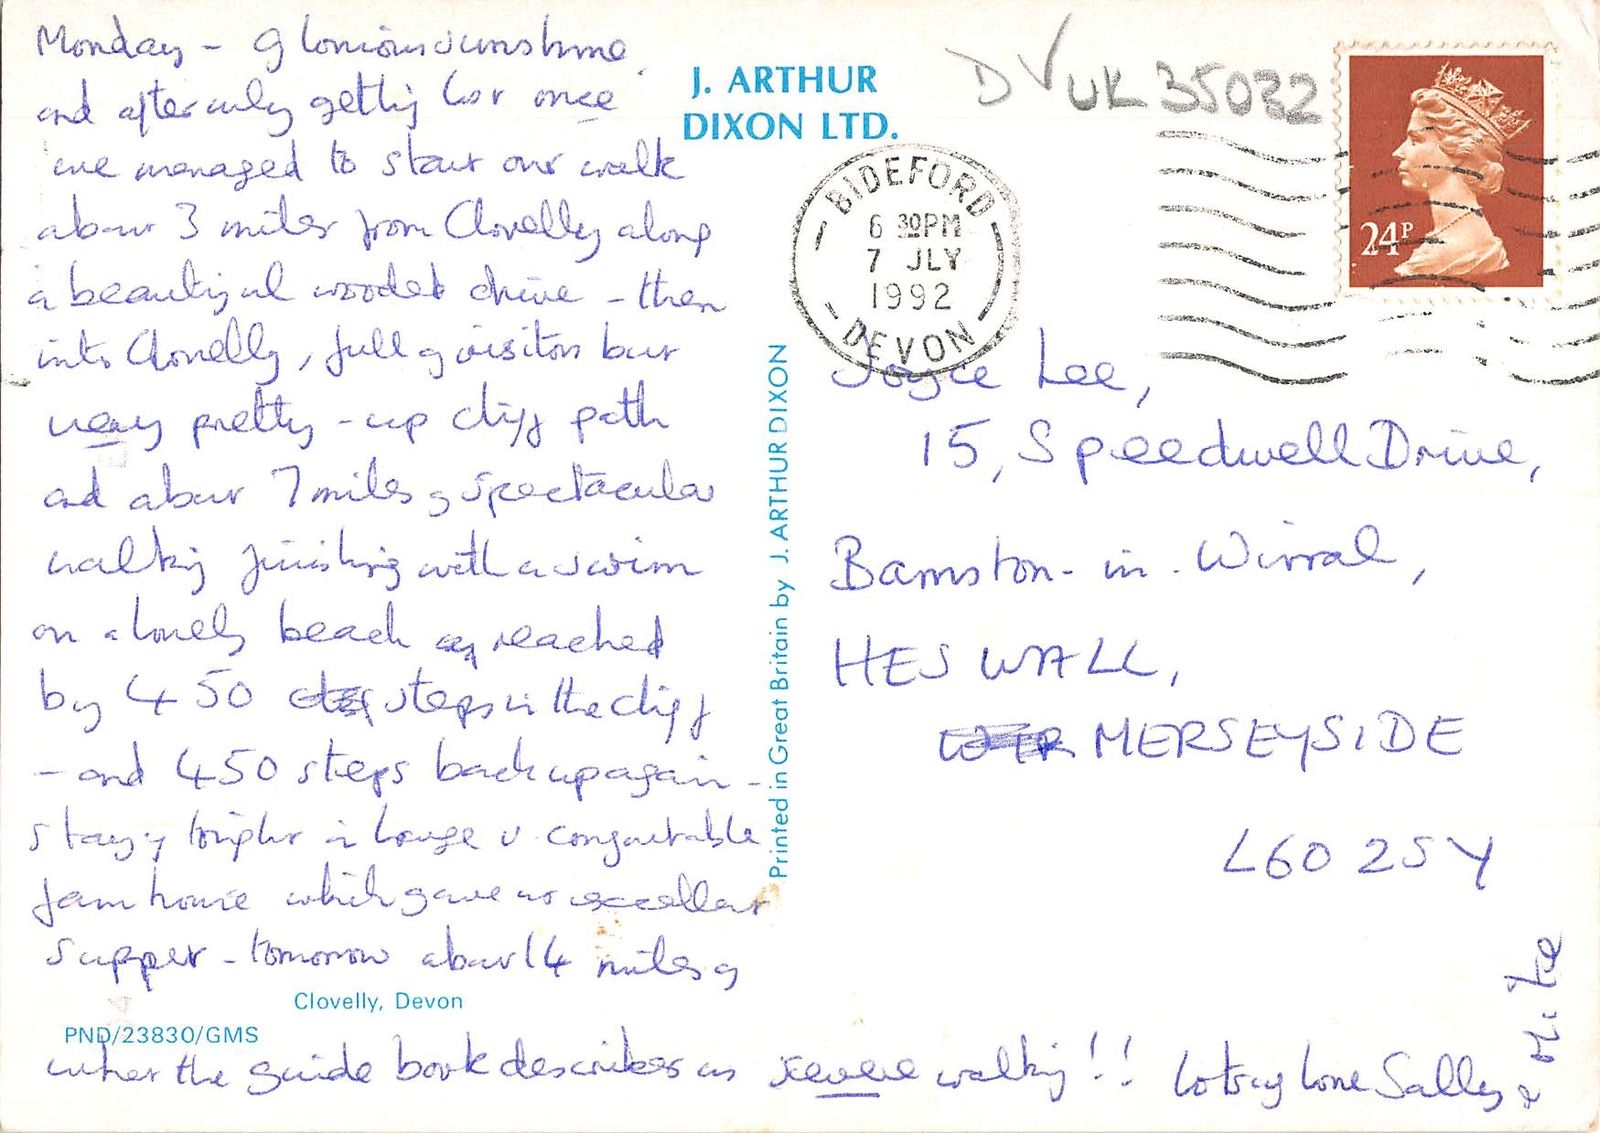 Monday - Glorious sunshine,
and after only getting lost once
we managed to start our walk
about 3 miles from Clovelly along
a beautiful wooded drive - then
into Clovelly, full of visitors but
very pretty - up cliff path
and about 7 miles of spectacular
walking finishing with a swim
on a lonely beach reached
by 450 steps in the cliff
- and 450 steps back up again -
staying tonight in large v. comfortable
farm house which gave us excellent
supper - tomorrow about 14 miles of
what the guide book describes as severe walking!! Lots of love Sally
& Mike
Clovelly, Devon
PND/23830/GMS
J. ARTHUR
DIXON LTD.
Printed in Great Britain by J. ARTHUR DIXON
DV UK 35032
BIDEFORD
6 30PM
7 JLY
1992
DEVON
24P
Joyce Lee,
15, Speedwell Drive,
Barnston-in-Wirral,
HESWALL,
MERSEYSIDE
L60 2SY